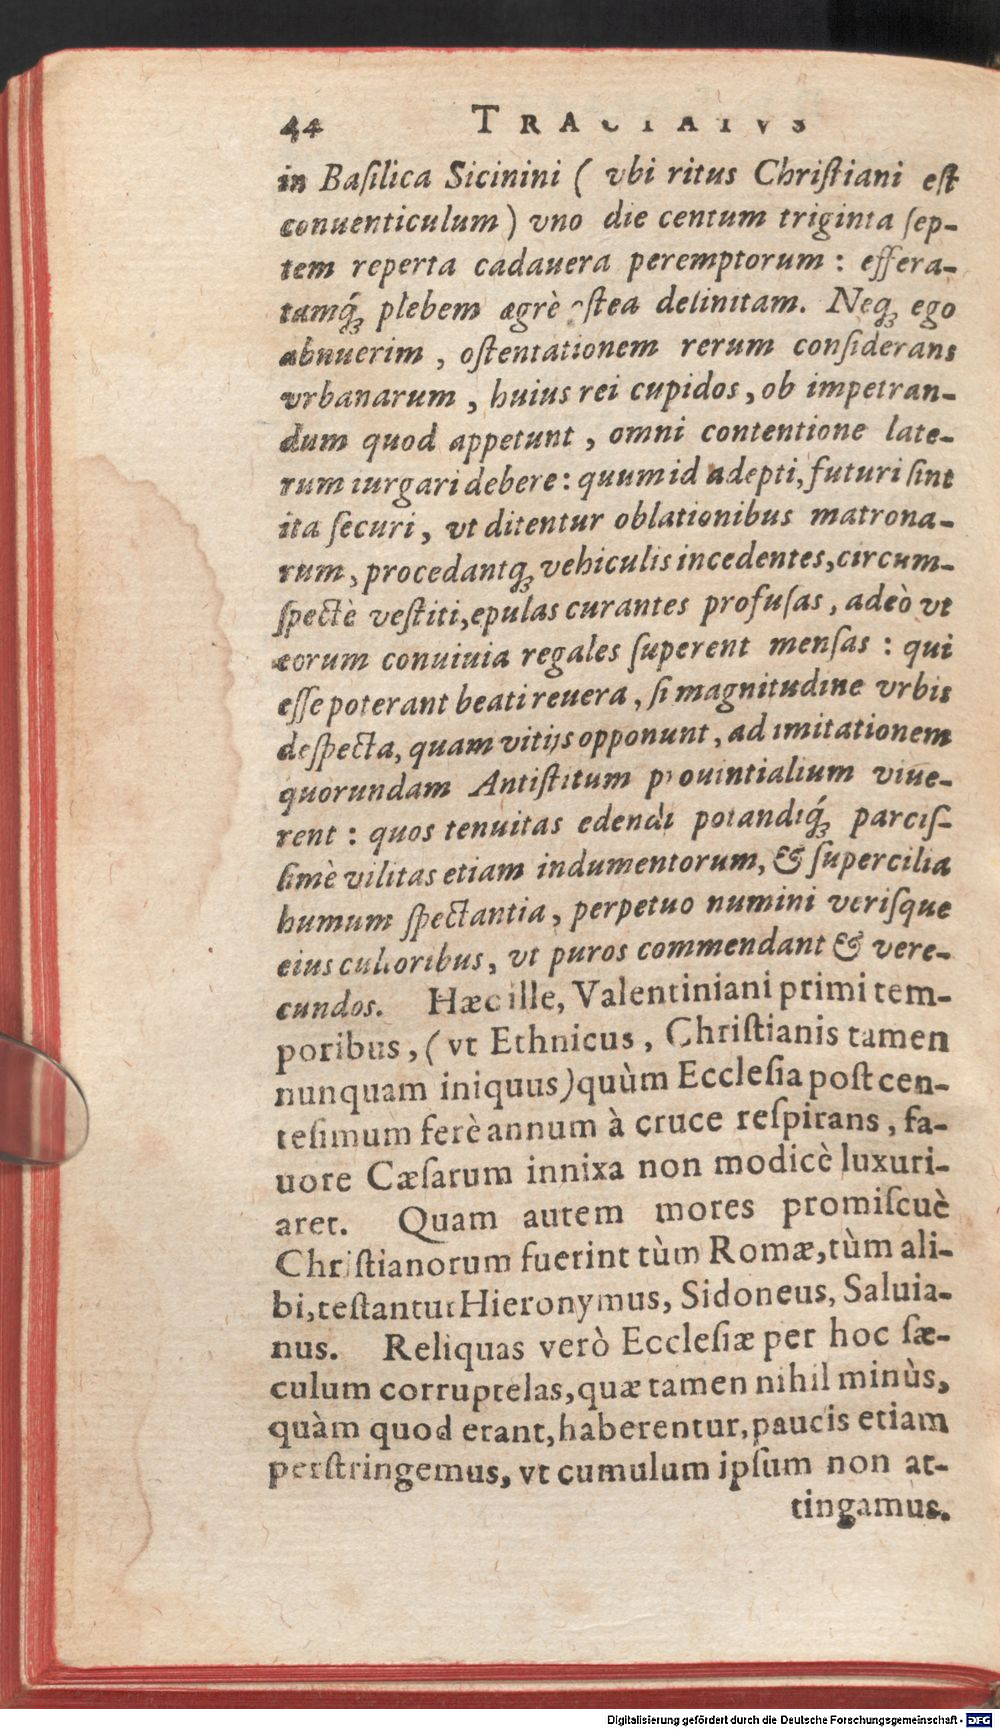 44 TRACTATVS
in Baſilica Sicinini ( vbi ritus Chriſtiani eſt
conuenticulum ) vno die centum triginta ſep-
tem reperta cadauera peremptorum : effera-
tamq́ꝫ plebem ægrè poſtea delinitam. Neqꝫ ego
abnuerim , oſtentationem rerum conſiderans
vrbanarum , huius rei cupidos, ob impetran-
dum quod appetunt , omni contentione late-
rum iurgari debere: quum id adepti, futuri ſint
ita ſecuri, vt ditentur oblationibus matrona-
rum, procedantqꝫ vehiculis incedentes, circum-
ſpectè veſtiti, epulas curantes profuſas, adeò vt
eorum conuiuia regales ſuperent menſas : qui
eſſe poterant beati reuera, ſi magnitudine vrbis
deſpecta, quam vitijs opponunt, ad imitationem
quorundam Antiſtitum prouintialium viue-
rent : quos tenuitas edendi potandiq́ꝫ parciſ-
ſimè vilitas etiam indumentorum, & ſupercilia
humum ſpectantia, perpetuo numini veriſque
eius cultoribus, vt puros commendant & vere-
cundos. Hæc ille, Valentiniani primi tem-
poribus, ( vt Ethnicus, Chriſtianis tamen
nunquam iniquus) quùm Eccleſia poſt cen-
teſimum ferè annum à cruce reſpirans, fa-
uore Cæſarum innixa non modicè luxuri-
aret. Quam autem mores promiſcuè
Chriſtianorum fuerint tùm Romæ, tùm ali-
bi, teſtantur Hieronymus, Sidoneus, Saluia-
nus. Reliquas verò Eccleſiæ per hoc ſæ-
culum corruptelas, quæ tamen nihil minùs,
quàm quod erant, haberentur, paucis etiam
perſtringemus, vt cumulum ipſum non at-
tingamus.
Digitalisierung gefördert durch die Deutsche Forschungsgemeinschaft - DFG